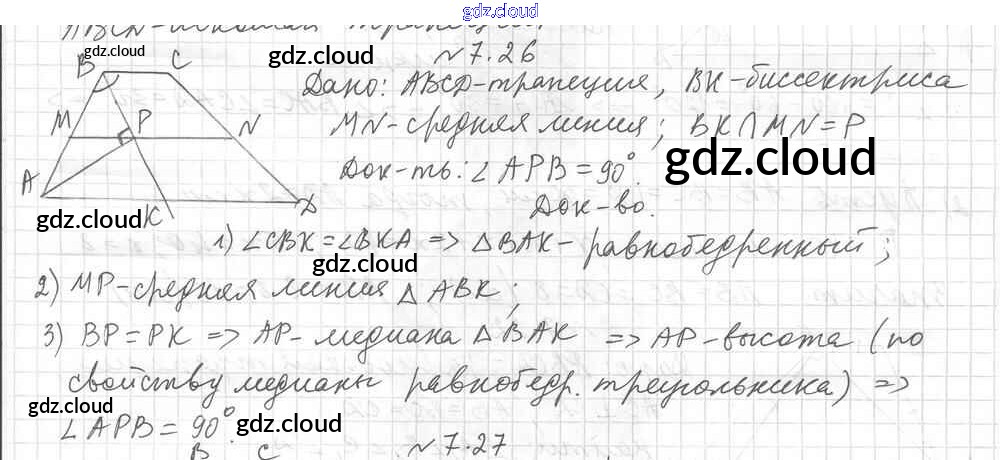 gdz.cloud
ABCD-искомая трапеция
gdz.cloud
gdz.cloud
№7.26
B C
Дано: ABCD-трапеция, BK-биссектриса
M P N
MN-средняя линия; BK∩MN=P
gdz.cloud
Док-ть: ∠APB=90°.
A D
Док-во.
gdz.cloud K
1) ∠CBK=∠BKA => △BAK-равнобедренный;
gdz.cloud
2) MP-средняя линия △ABK;
3) BP=PK => AP-медиана △BAK => AP-высота (по
свойству медианы равнобедр. треугольника) =>
gdz.cloud
gdz.cloud
∠APB=90°.
gdz.cloud
B C №7.27